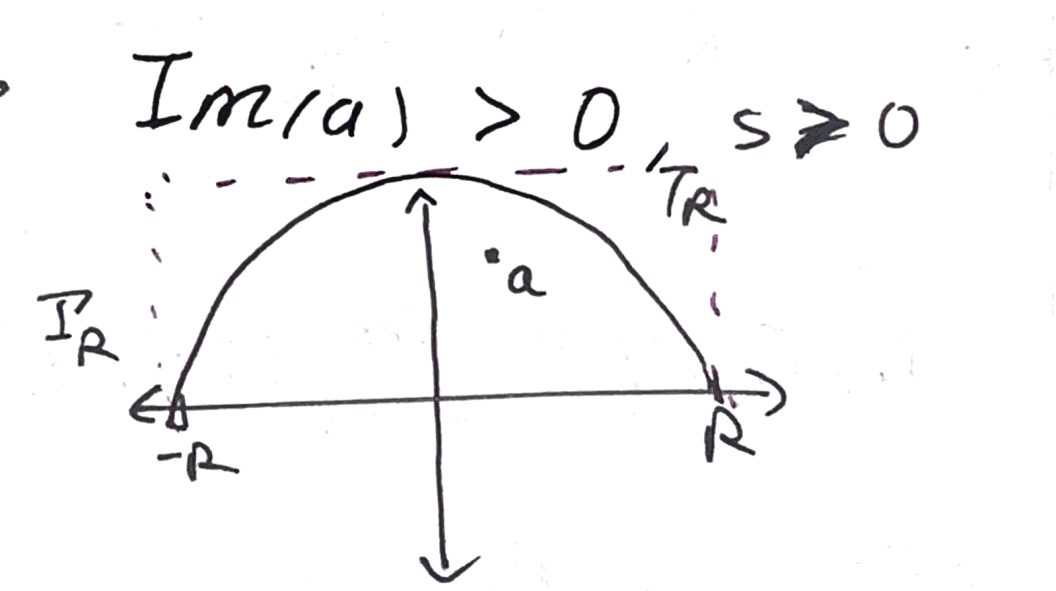 Im(a) > 0, s ≥ 0
T_R
a
Γ_R
-R
R